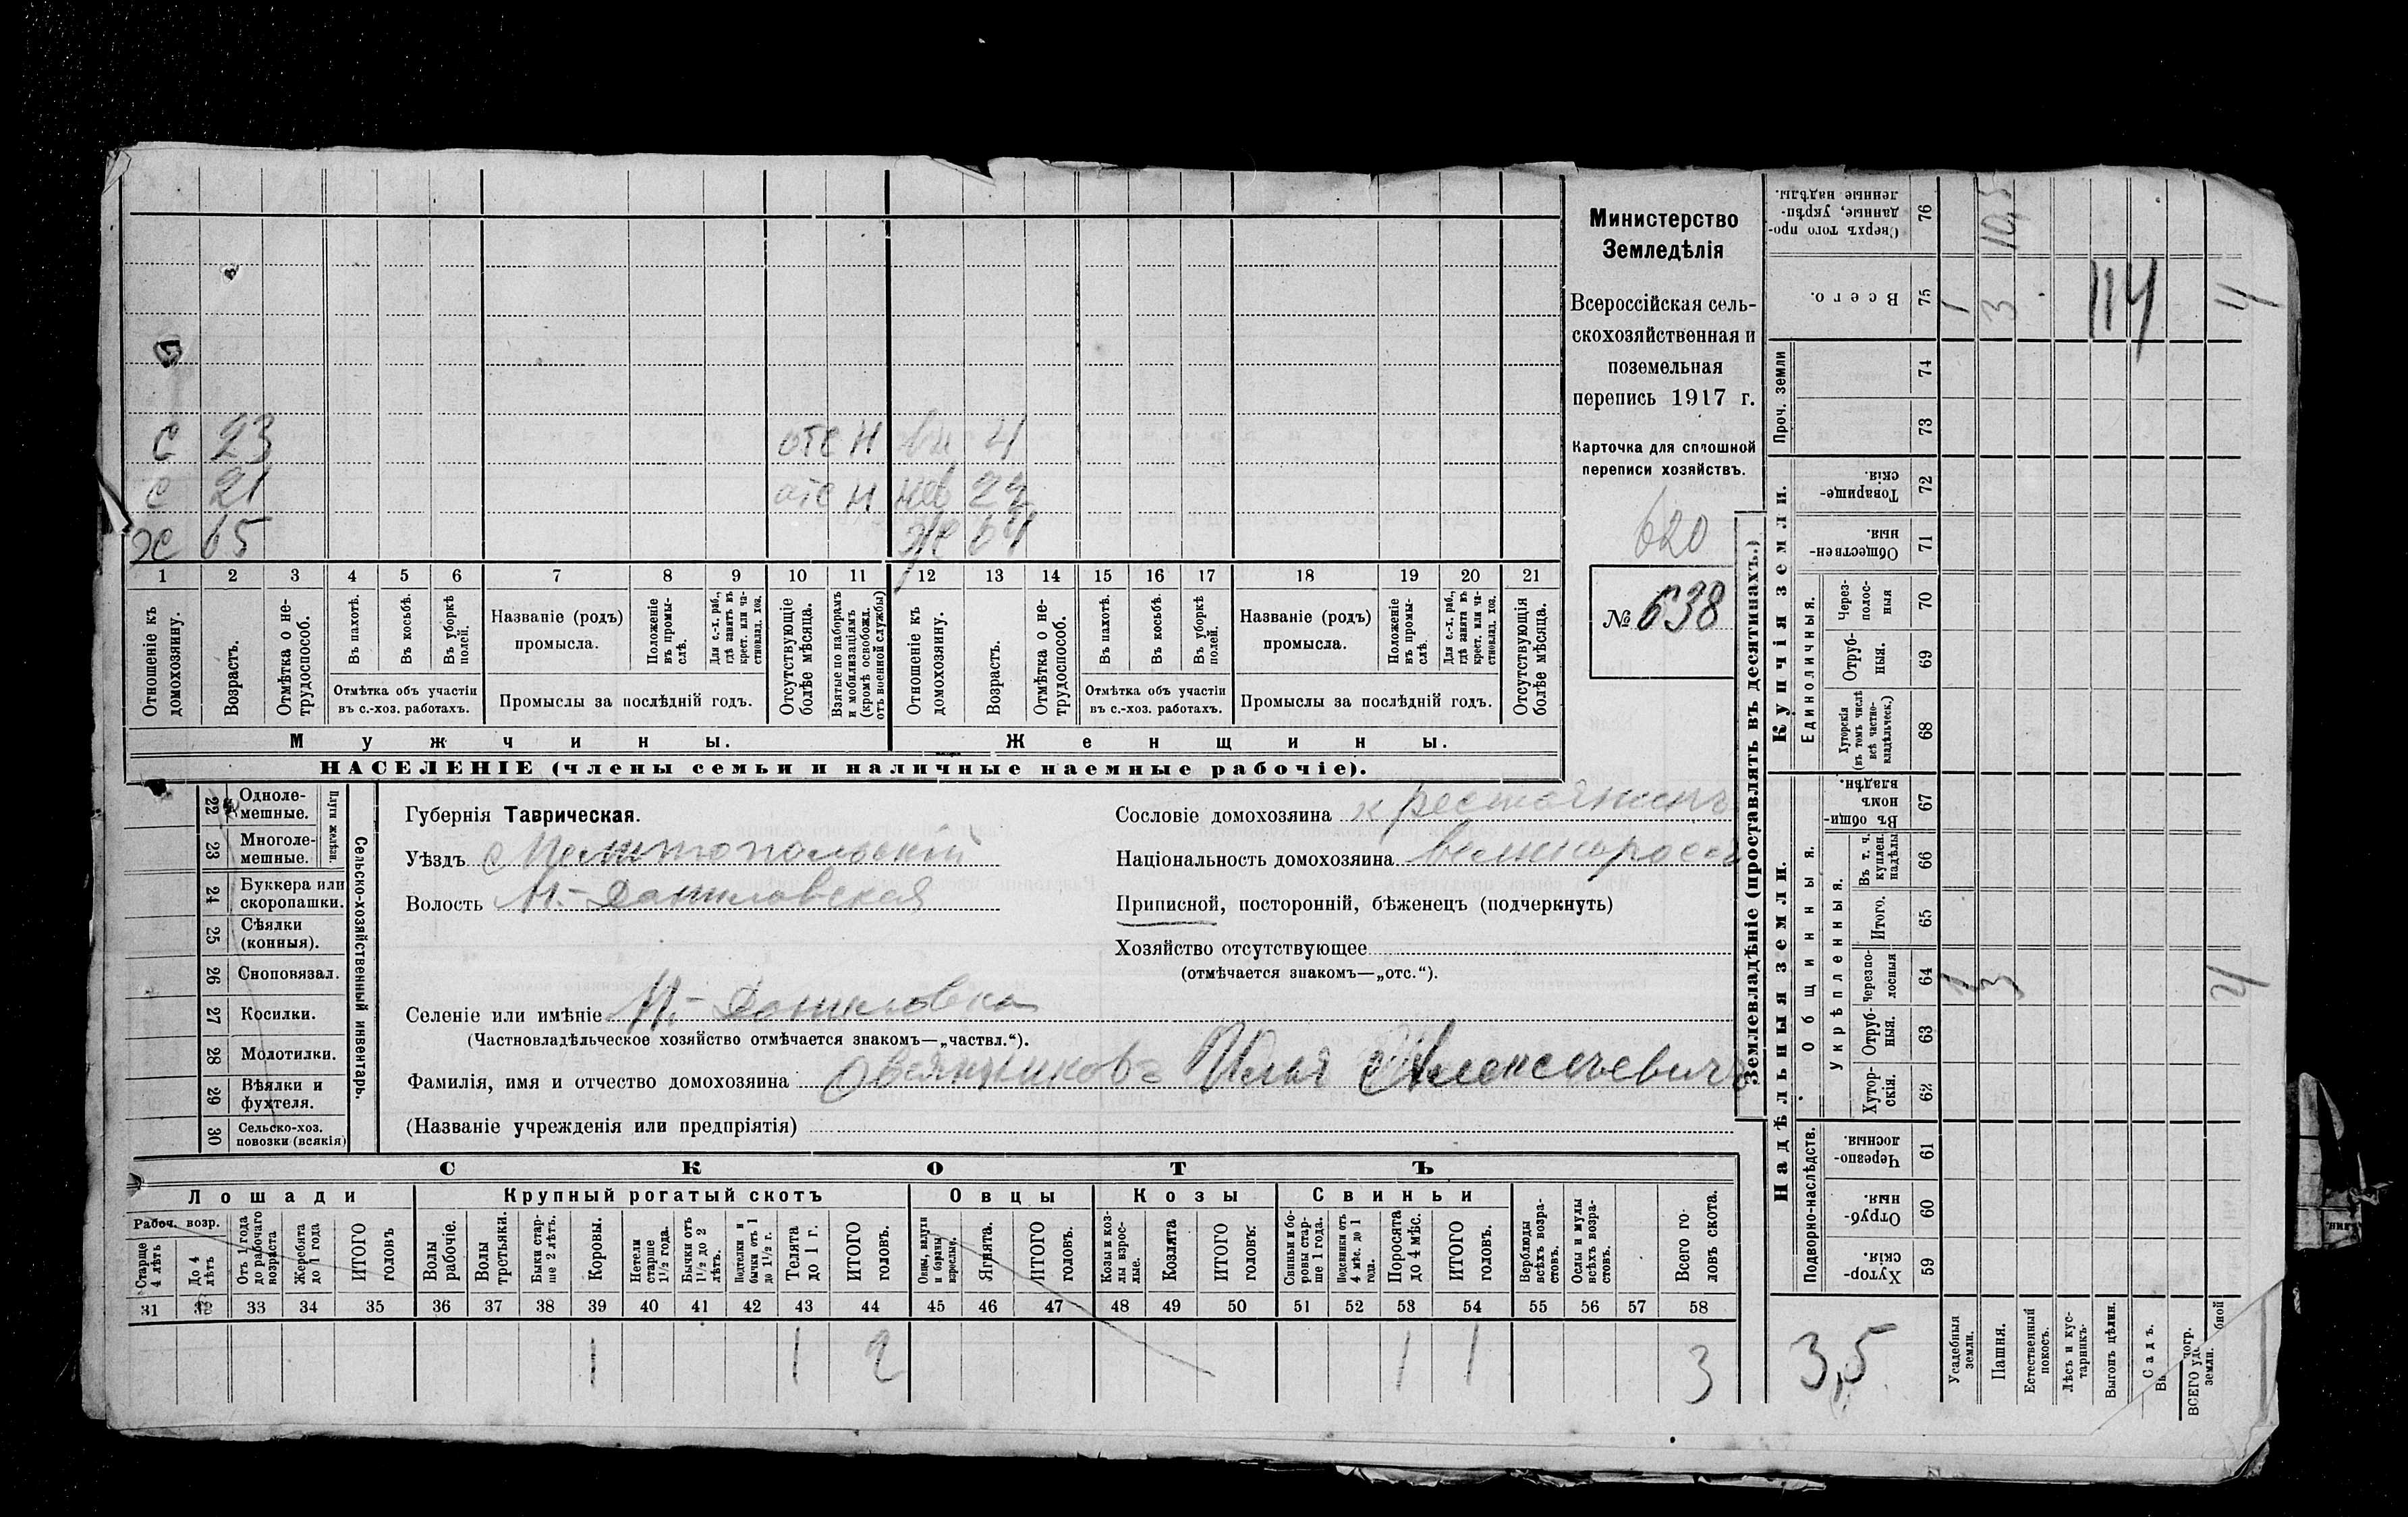 с 23 отс н вн 4
с 21 отс н нев 22
х 65 ж 64
1 2 3 4 5 6 7 8 9 10 11 12 13 14 15 16 17 18 19 20 21
Отношеніе къ домохозяину.
Возрастъ.
Отмѣтка о не-
трудоспособ.
Въ пахотѣ.
Въ косьбѣ.
Въ уборкѣ полей.
Отмѣтка объ участіи
въ с.-хоз. работахъ.
Названіе (родъ)
промысла.
Положеніе въ промы-
слѣ.
Для с.-х. раб.,
гдѣ занятъ въ
крест. или ча-
стновлад. хоз.
Промыслы за послѣдній годъ.
Отсутствующіе
болѣе мѣсяца.
Взятые по наборамъ
и мобилизаціямъ
(кромѣ освобожд.
отъ военной службы)
Отношеніе къ
домохозяину.
Возрастъ.
Отмѣтка о не-
трудоспособ.
Въ пахотѣ.
Въ косьбѣ.
Въ уборкѣ
полей.
Отмѣтка объ участіи
въ с.-хоз. работахъ.
Названіе (родъ)
промысла.
Положеніе
въ промы-
слѣ.
Для с.-х. раб.,
гдѣ занята въ
крест. или ча-
стновлад. хоз.
Промыслы за послѣдній годъ.
Отсутствующія
болѣе мѣсяца.
Мужчины.
Женщины.
НАСЕЛЕНІЕ (члены семьи и наличные наемные рабочіе).
Министерство
Земледѣлія
Всероссійская сель-
скохозяйственная и
поземельная
перепись 1917 г.
Карточка для сплошной
переписи хозяйствъ.
620
№ 638
22 Одноле-
мешные.
23 Многоле-
мешные.
Плуги желѣзн.
24 Буккера или
скоропашки.
25 Сѣялки
(конныя).
26 Сноповязал.
27 Косилки.
28 Молотилки.
29 Вѣялки и
фухтеля.
30 Сельско-хоз.
повозки (всякія)
Сельско-хозяйственный инвентарь.
Губернія Таврическая.
Уѣздъ Мелитопольскій
Волость Н.-Даниловская
Сословіе домохозяина крестьянинъ
Національность домохозяина великоросс
Приписной, посторонній, бѣженецъ (подчеркнуть)
Хозяйство отсутствующее
(отмѣчается знакомъ—„отс.“).
Селеніе или имѣніе Н.-Даниловка
(Частновладѣльческое хозяйство отмѣчается знакомъ—„частвл.“).
Фамилія, имя и отчество домохозяина Овсянниковъ Илья Алексеевичъ
(Названіе учрежденія или предпріятія)
СКОТЪ
Лошади
Рабоч. возр.
Старше
4 лѣтъ
До 4
лѣтъ
Отъ 1 года
до рабочаго
возраста
Жеребята
до 1 года
ИТОГО
головъ
Крупный рогатый скотъ
Волы
рабочіе.
Волы
третьяки.
Быки стар-
ше 2 лѣтъ.
Коровы.
Нетели
старше
1½ года.
Бычки отъ
1½ до 2
лѣтъ.
Подтелки и
бычки отъ 1
до 1½ г.
Телята
до 1 г.
ИТОГО
головъ.
Овцы
Овцы, валухи
и бараны
взрослые.
Ягнята.
ИТОГО
головъ.
Козы
Козы и коз-
лы взрос-
лые.
Козлята
ИТОГО
головъ.
Свиньи
Свиньи и бо-
ровы стар-
ше 1 года.
Подсвинки отъ
4 мѣс. до 1
года.
Поросята
до 4 мѣс.
ИТОГО
головъ.
Верблюды
всѣхъ возра-
стовъ.
Ослы и мулы
всѣхъ возра-
стовъ.
Всего го-
ловъ скота.
31 32 33 34 35 36 37 38 39 40 41 42 43 44 45 46 47 48 49 50 51 52 53 54 55 56 57 58
1 1 2 1 1 3
Землевладѣніе (проставлять въ десятинахъ.)
Надѣльныя земли.
Купчія земли.
Проч. земли
Подворно-наслѣдств.
Общинныя.
Укрѣпленныя.
Единоличныя.
Сверхъ того про-
данные, укрѣп-
ленные надѣлы.
76 10,5
Всего.
75 1 3 114 4
74
73
Товарище-
скія.
72
Обществен-
ныя.
71
Через-
полос-
ныя
70
Отруб-
ныя.
69
Хуторскія
(въ томъ числѣ
всѣ частно-
владѣльческ.)
68
Въ общин-
номъ
владѣн.
67
Въ т. ч.
куплен.
надѣлы
66
Итого.
65
Черезпо-
лосныя
64 1 3 4
Отруб-
ныя.
63
Хутор-
скія.
62
Черезпо-
лосныя
61
Отруб-
ныя.
60
Хутор-
скія.
59
3,5
Усадебныя
земли.
Пашня.
Естественный
покосъ.
Лѣсъ и кус-
тарникъ.
Выгонъ цѣлин.
Садъ.
ВСЕГО
земли.